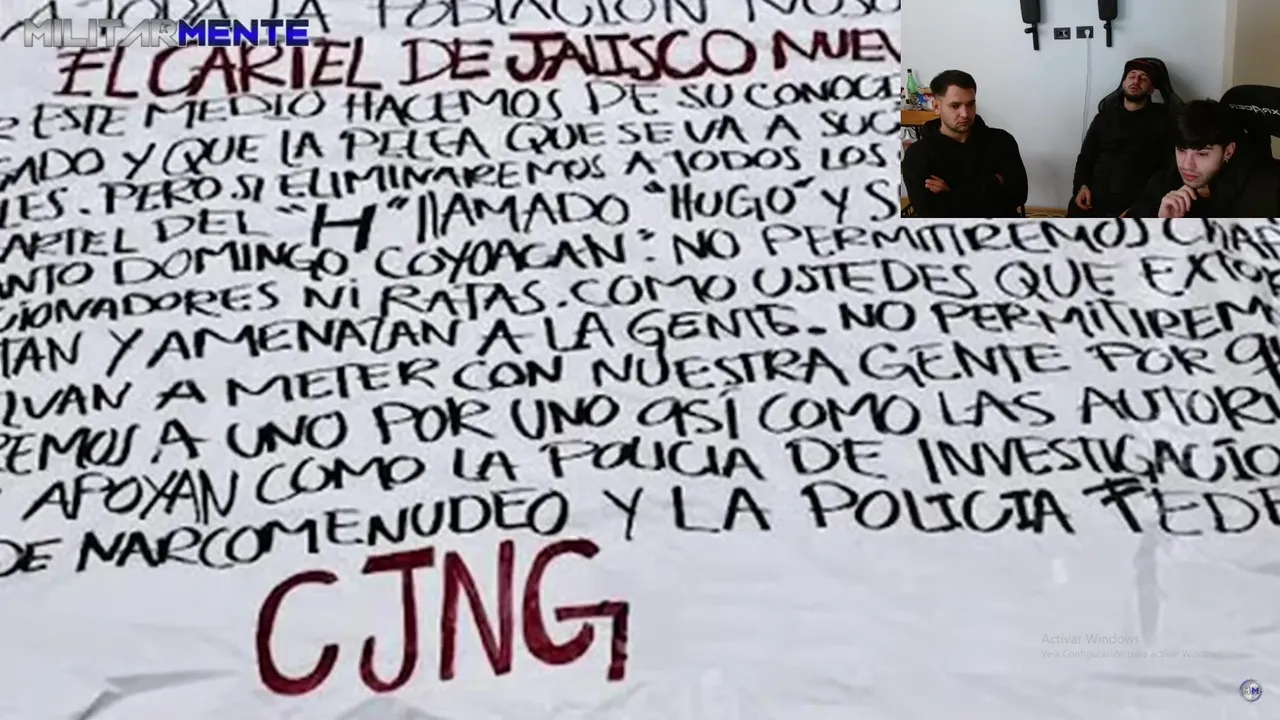 MILITARMENTE
A TODA LA POBLACION NOSO
EL CARTEL DE JALISCO NUEV
ESTE MEDIO HACEMOS DE SU CONOCI
GADO Y QUE LA PELEA QUE SE VA A SUC
LES. PERO SI ELIMINAREMOS A TODOS LOS
CARTEL DEL "H" LLAMADO "HUGO" Y S
ANTO DOMINGO COYOACAN: NO PERMITIREMOS CHAP
CIONADORES NI RATAS. COMO USTEDES QUE EXTOR
TAN Y AMENAZAN A LA GENTE. NO PERMITIREM
LVAN A METER CON NUESTRA GENTE POR QU
REMOS A UNO POR UNO ASÍ COMO LAS AUTORI
APOYAN COMO LA POLICIA DE INVESTIGACIO
DE NARCOMENUDEO Y LA POLICIA FEDE
CJNG
Activar Windows
Ve a Configuración para activar Windows.